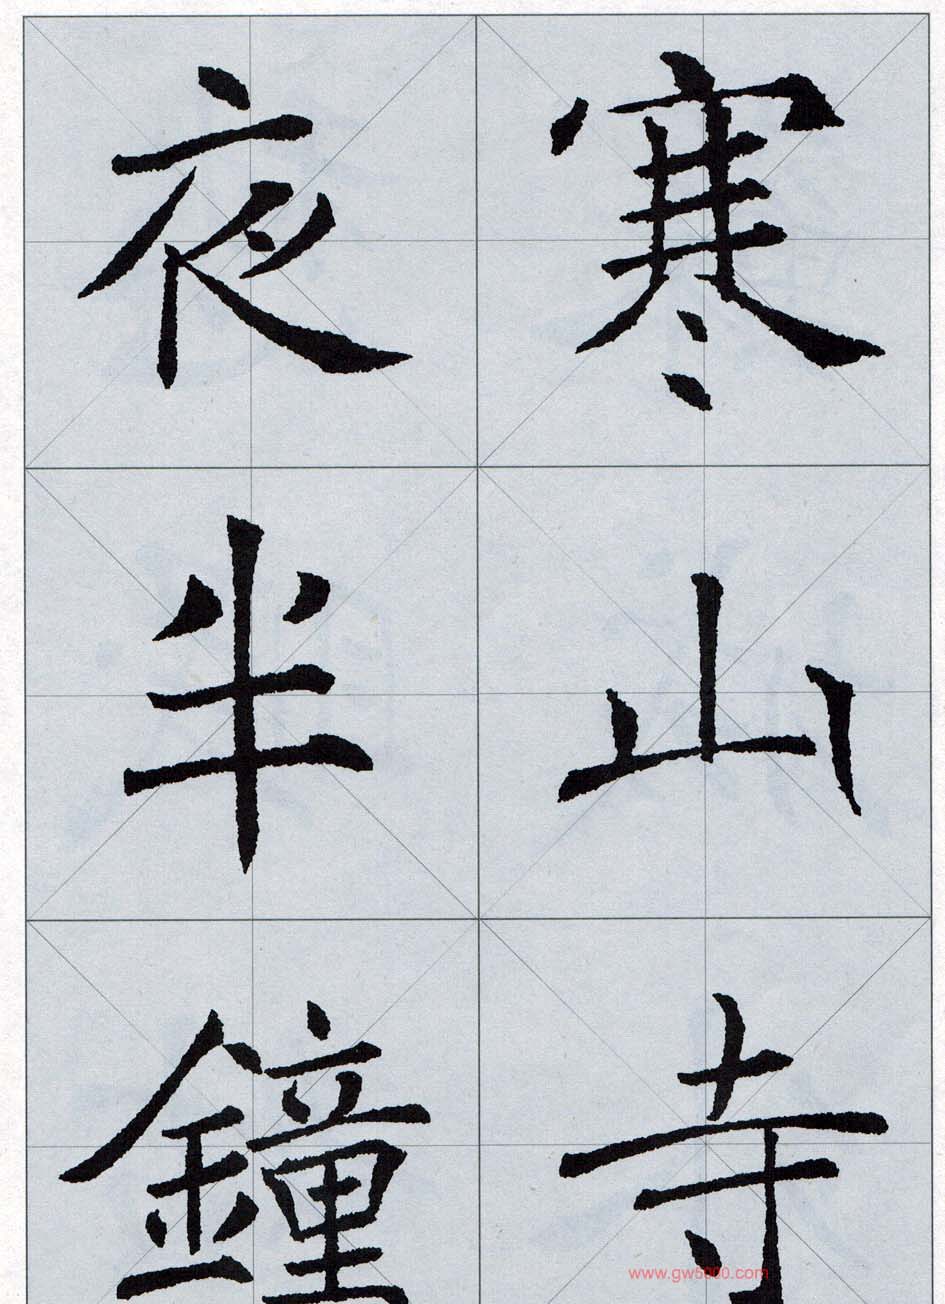 寒山寺
夜半鐘
www.gw5000.com